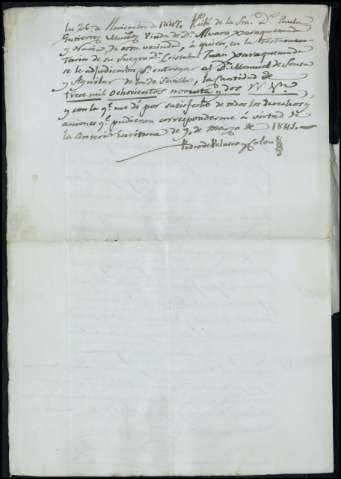 En 26 de Noviembre de 1847. Recibí de la Sra. Dª Paula
Gutierrez Viuda de Dn. Alvaro Paraquemada
y de esta vecindad, á quien, en la
de su suegro Dn. Cristobal Juan Paraquemada
se le adjudicaron p.ª entregar al Dn. Manuel de Sousa
y Aguilar de Sevilla, la cantidad de
trece mil ochocientos noventa y dos rs. vn.
y con lo q.e me doy por satisfecho de todos los derechos y
acciones q.e pudieran corresponderme á virtud de
la anterior Escritura de 9. de Marzo de 1841.
Pedro de y Colon